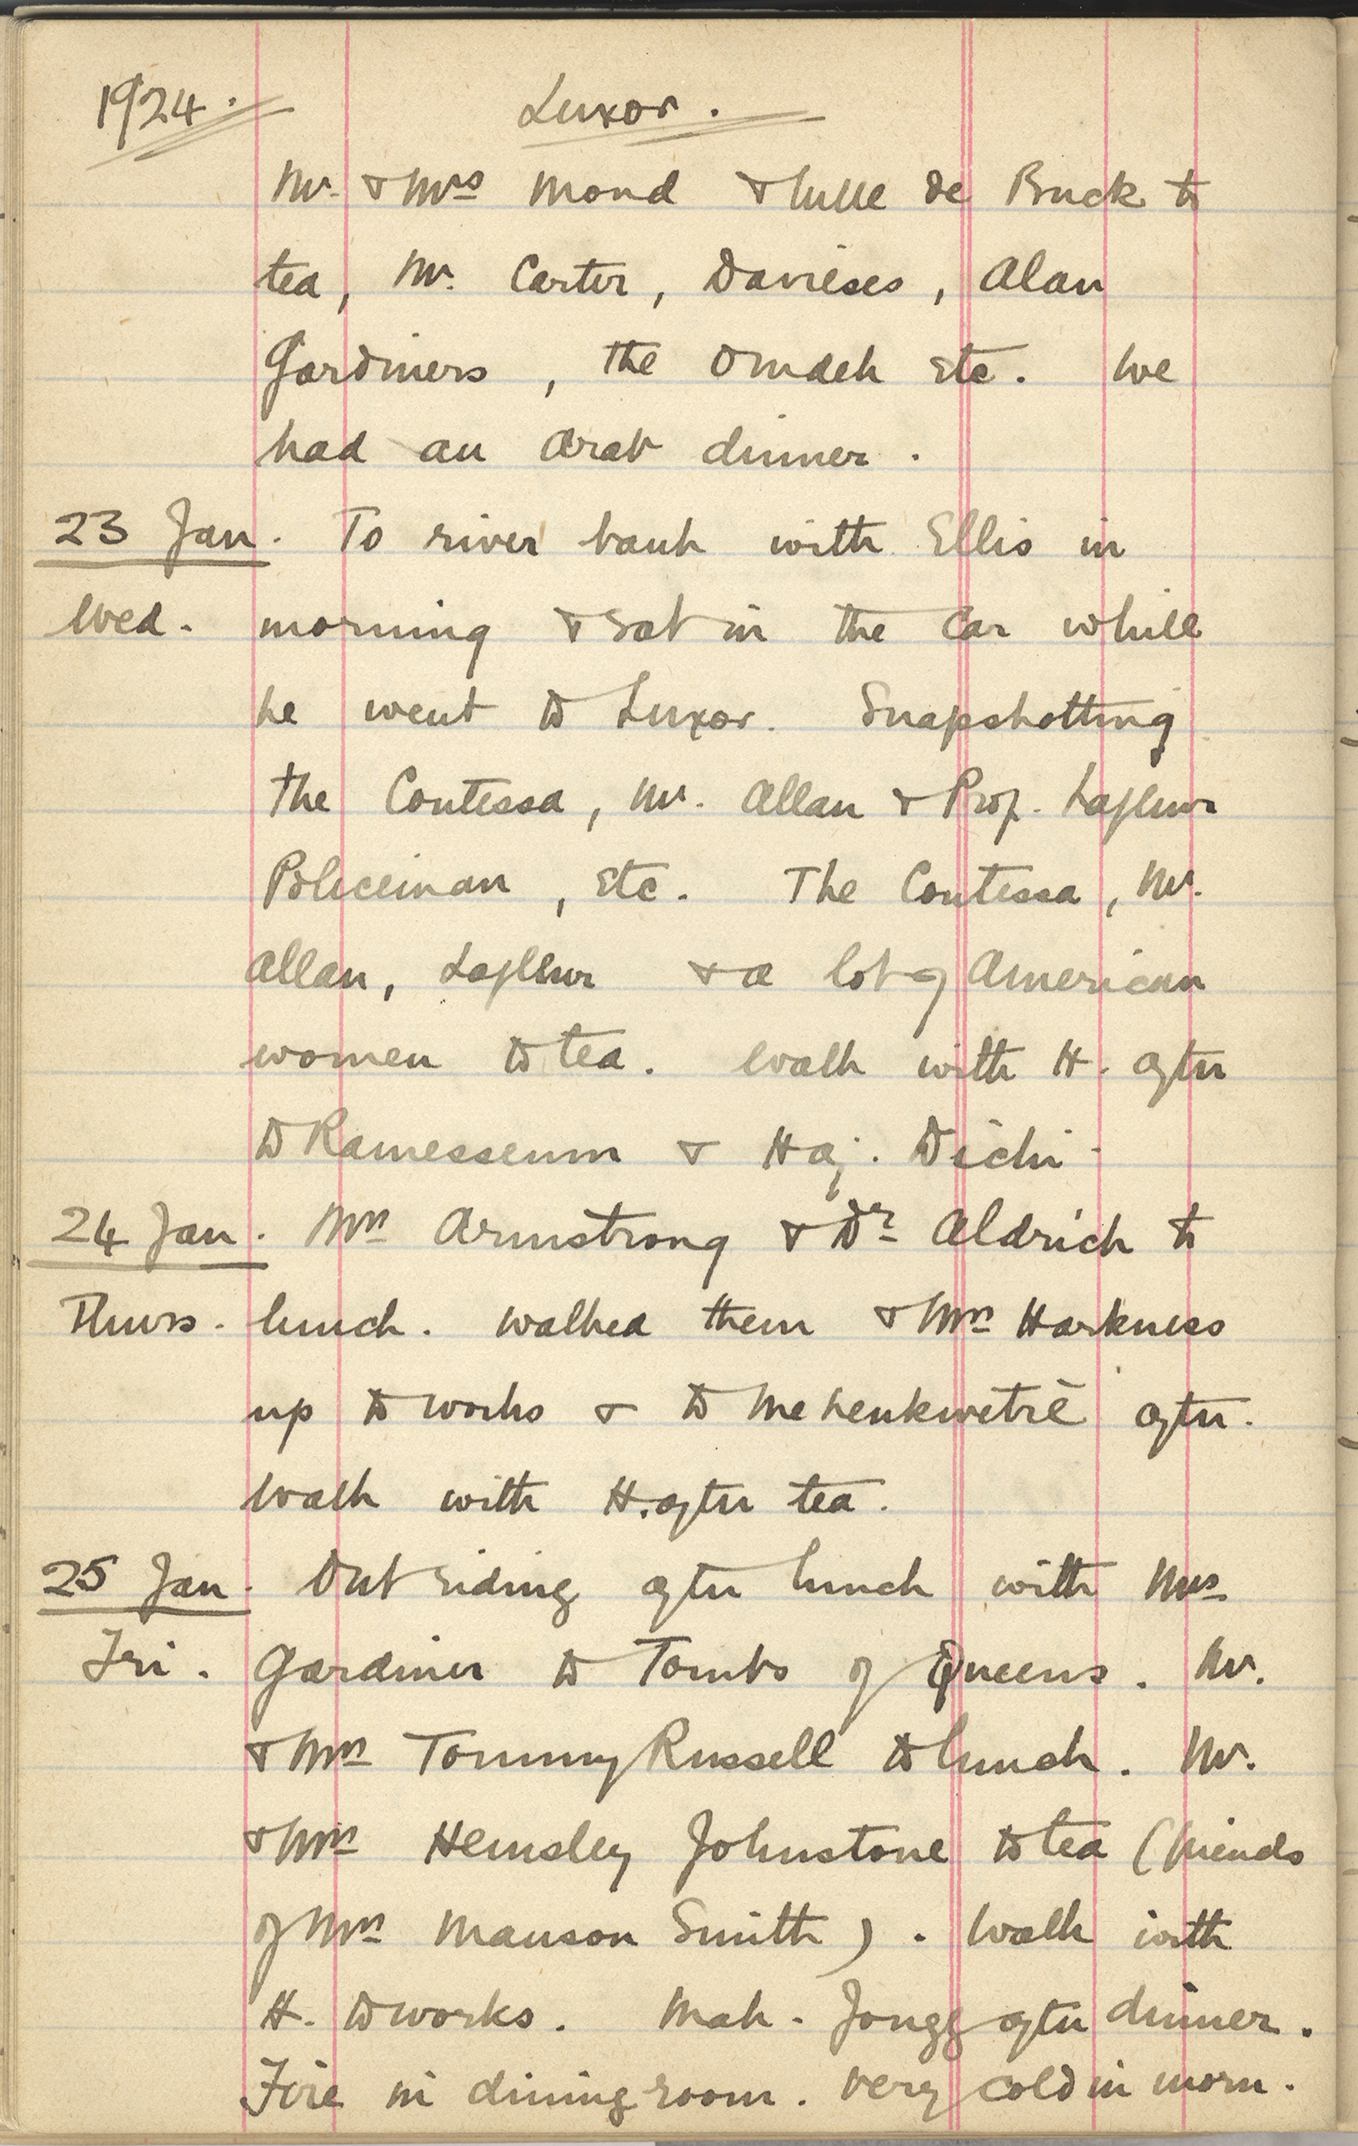 1924. Luxor.
Mr. & Mrs Mond & Mlle de Buck to
tea, Mr. Carter, Davieses, Alan
Gardiners, the Omdeh etc. We
had an Arab dinner.
23 Jan. To river bank with Ellis in
Wed. morning & sat in the car while
he went to Luxor. Snapshotting
the Contessa, Mr. Allan & Prof. Lafleur
Policeman, etc. The Contessa, Mr.
Allan, Lafleur & a lot of American
women to tea. Walk with H. after
to Ramesseum & Haj. Dichi.
24 Jan. Mrs Armstrong & Dr Aldrich to
Thurs. lunch. Walked them & Mrs Harkness
up to works & to Mehenkwetrē after.
Walk with H. after tea.
25 Jan. Out riding after lunch with Mrs
Fri. Gardiner to Tombs of Queens. Mr.
& Mrs Tommy Russell to lunch. Mr.
& Mrs Hemsley Johnstone to tea (friends
of Mrs Manson Smith). Walk with
H. to works. Mah-Jongg after dinner.
Fire in dining room. Very cold in morn.